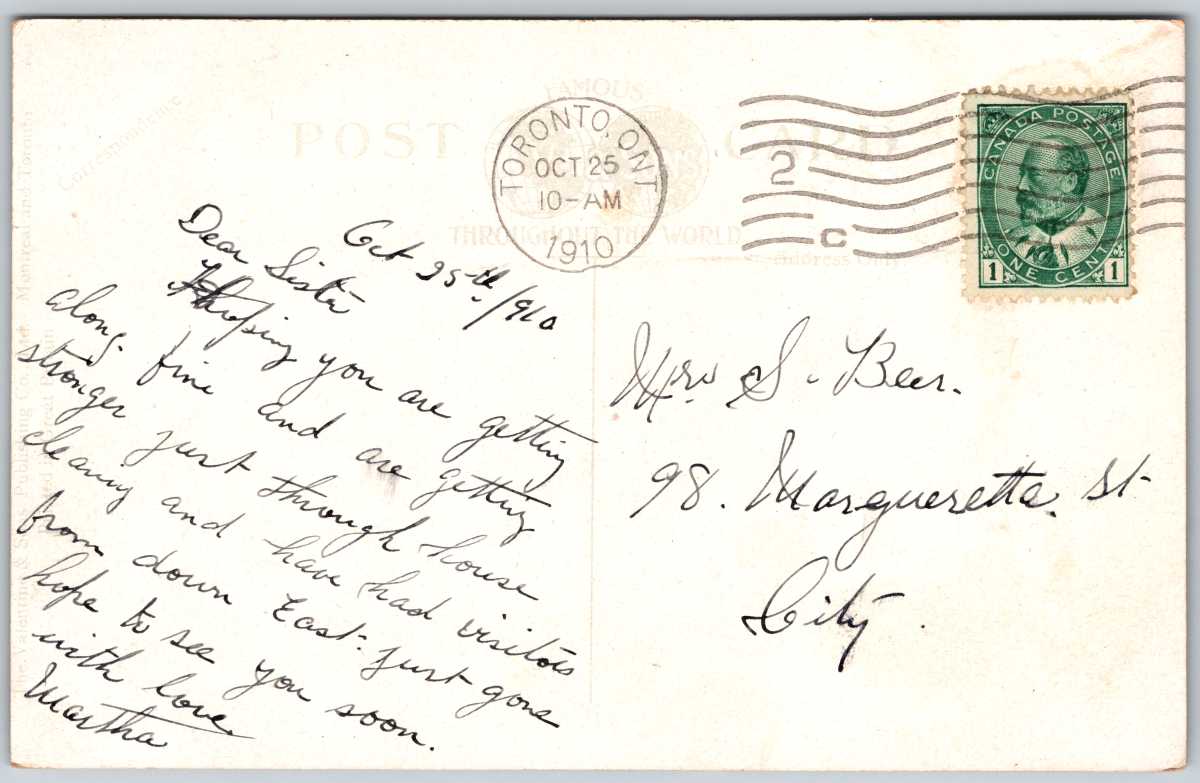 Correspondence
POST CARD
FAMOUS
THROUGHOUT THE WORLD
Address Only
TORONTO, ONT
OCT 25
10-AM
1910
2
C
CANADA POSTAGE
1 ONE CENT 1
Oct 25th/910
Dear Sister
Hoping you are getting
along fine and are getting
stronger just through house
cleaning and have had visitors
from down East. just gone
hope to see you soon.
with love.
Martha
Mrs S. Beer.
98. Marguerette. St
City.
The Valentine & Sons Publishing Co. Ltd. Montreal and Toronto